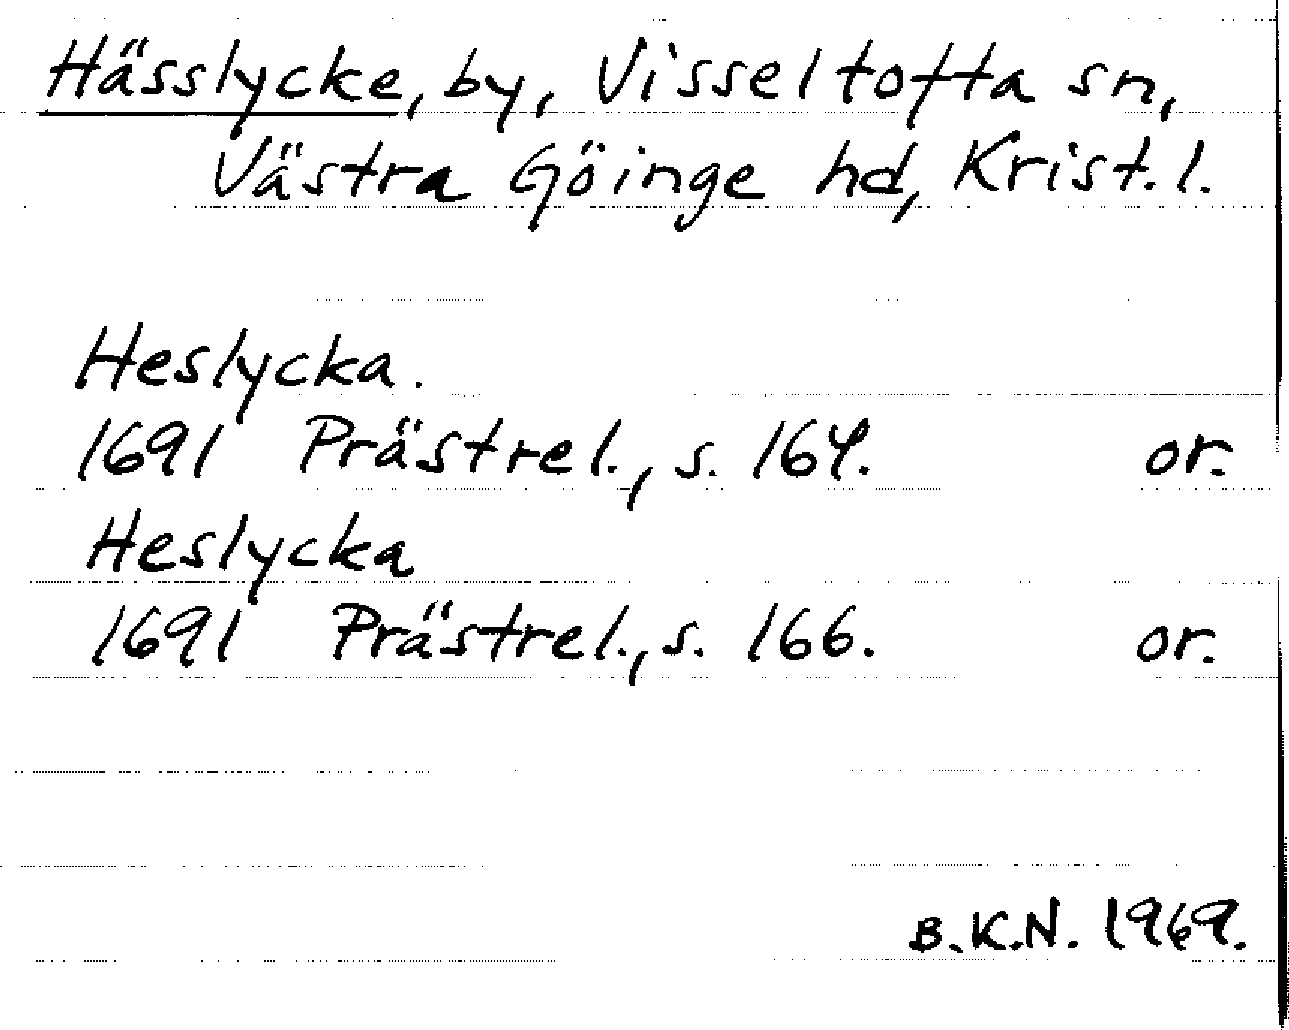 Hässlycke, by, Visseltofta sn,
Västra Göinge hd, Krist. l.
Heslycka.
1691 Prästrel., s. 164. or.
Heslycka
1691 Prästrel., s. 166. or.
B.K.N. 1969.